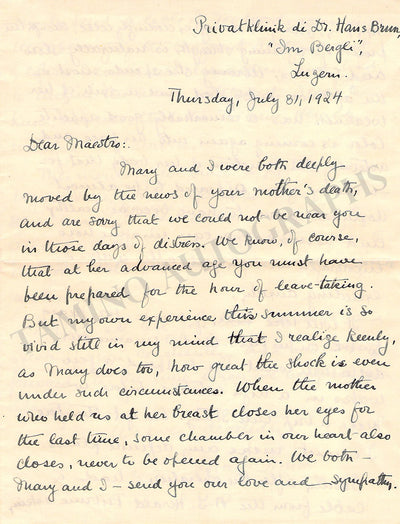 Privatklinik di Dr. Hans Brun,
"Im Bergli",
Luzern.
Thursday, July 31, 1924
Dear Maestro:.
Mary and I were both deeply
moved by the news of your mother's death,
and are sorry that we could not be near you
in those days of distress. We know, of course,
that at her advanced age you must have
been prepared for the hour of leave-taking.
But my own experience this summer is so
vivid still in my mind that I realize keenly,
as Mary does too, how great the shock is even
under such circumstances. When the mother
who held us at her breast closes her eyes for
the last time, some chamber in our heart also
closes, never to be opened again. We both -
Mary and I - send you our love and sympathy.
TAMINO AUTOGRAPHS